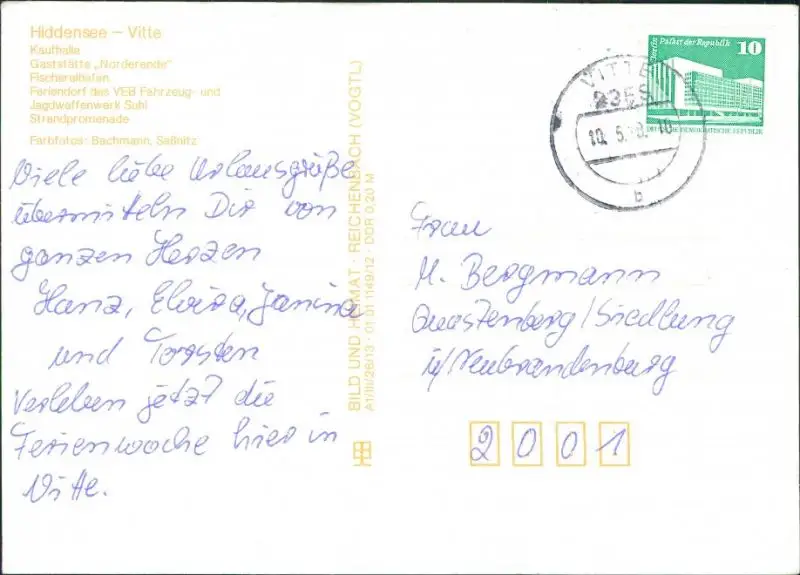 Hiddensee – Vitte
Kaufhalle
Gaststätte „Norderende"
Fischereihafen
Feriendorf des VEB Fahrzeug- und
Jagdwaffenwerk Suhl
Strandpromenade
Farbfotos: Bachmann, Saßnitz
Viele liebe Urlaubsgrüße
übermitteln Dir von
ganzen Herzen
Hanz, Elvira, Janina
und Torsten
Verleben jetzt die
Ferienwoche hier in
Vitte.
BILD UND HEIMAT · REICHENBACH (VOGTL)
A1/III/26/13 · 01 01 1149/12 · DDR 0,20 M
Berlin Palast der Republik 10
DEUTSCHE DEMOKRATISCHE REPUBLIK
VITTE
2355
10. 5. 10
b
Frau
M. Bergmann
Quastenberg/Siedlung
ü/Neubrandenburg
2001